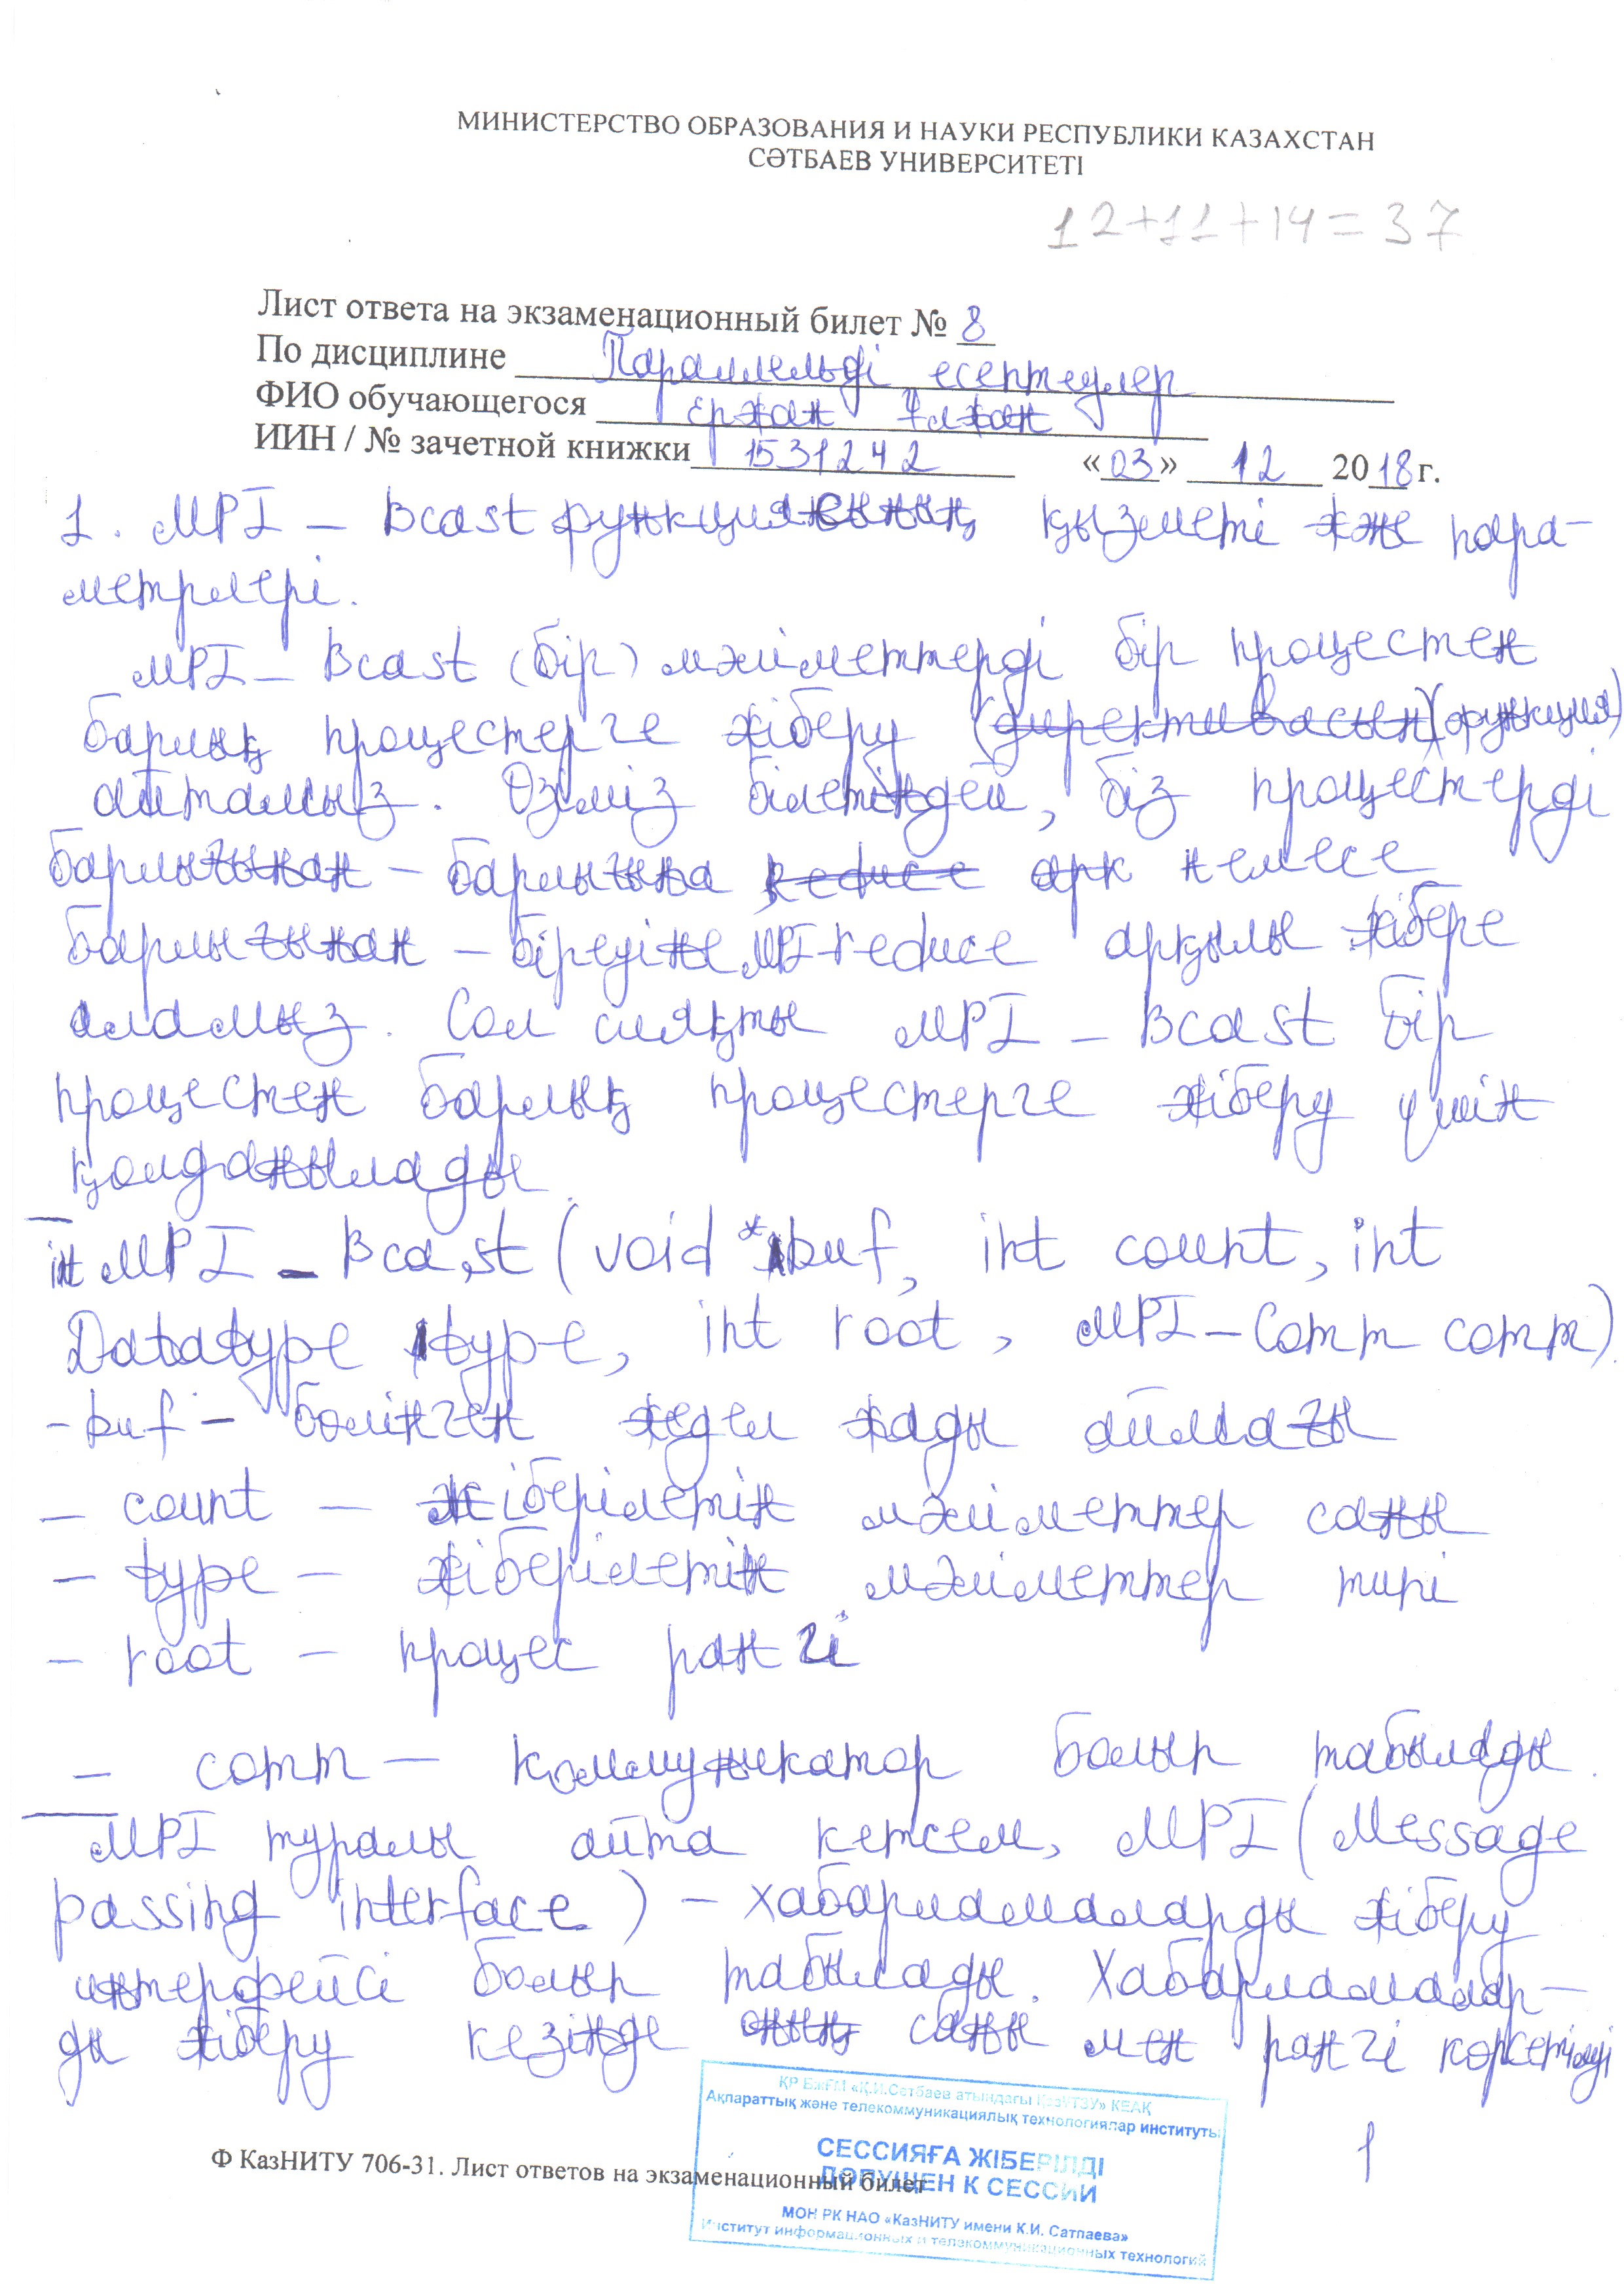 МИНИСТЕРСТВО ОБРАЗОВАНИЯ И НАУКИ РЕСПУБЛИКИ КАЗАХСТАН
СӘТБАЕВ УНИВЕРСИТЕТІ
12+11+14=37
Лист ответа на экзаменационный билет № 8
По дисциплине Параллельді есептеулер
ФИО обучающегося Ержан Ұлжан
ИИН / № зачетной книжки 1531242 «03» 12 2018 г.
1. MPI – Bcast функциясының қызметі және пара-
метрлері.
MPI – Bcast (бір) мәліметтерді бір процестен
барлық процестерге жіберу (директивасын) (функция)
айтамыз. Өзіміз білетіндей, біз процестерді
барлығынан – барлығына reduce арк немесе
барлығынан – біреуіне MPI-reduce арқылы жібере
аламыз. Сол сияқты MPI – Bcast бір
процестен барлық процестерге жіберу үшін
қолданылады.
int MPI – Bcast (void *buf, int count, int
Datatype type, int root, MPI – Comm comm).
- buf – бөлінген жедел жады аймағы
– count – жіберілетін мәліметтер саны
– type – жіберілетін мәліметтер типі
– root – процес рангі
– comm – коммуникатор болып табылады.
MPI туралы айта кетсем, MPI (Message
passing interface) – хабарламаларды жіберу
интерфейсі болып табылады. Хабарламалар-
ды жіберу кезінде оның саны мен рангі көрсетіледі
ҚР БжҒМ «Қ.И.Сәтбаев атындағы ҚазҰТЗУ» КЕАҚ
Ақпараттық және телекоммуникациялық технологиялар институты
СЕССИЯҒА ЖІБЕРІЛДІ
ДОПУЩЕН К СЕССИИ
МОН РК НАО «КазНИТУ имени К.И. Сатпаева»
Институт информационных и телекоммуникационных технологий
Ф КазНИТУ 706-31. Лист ответов на экзаменационный билет
1